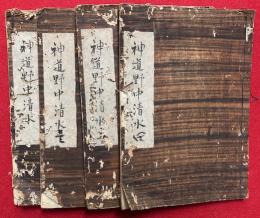 神道野中清水四
神道野中清水三
神道野中清水弐
神道野中清水